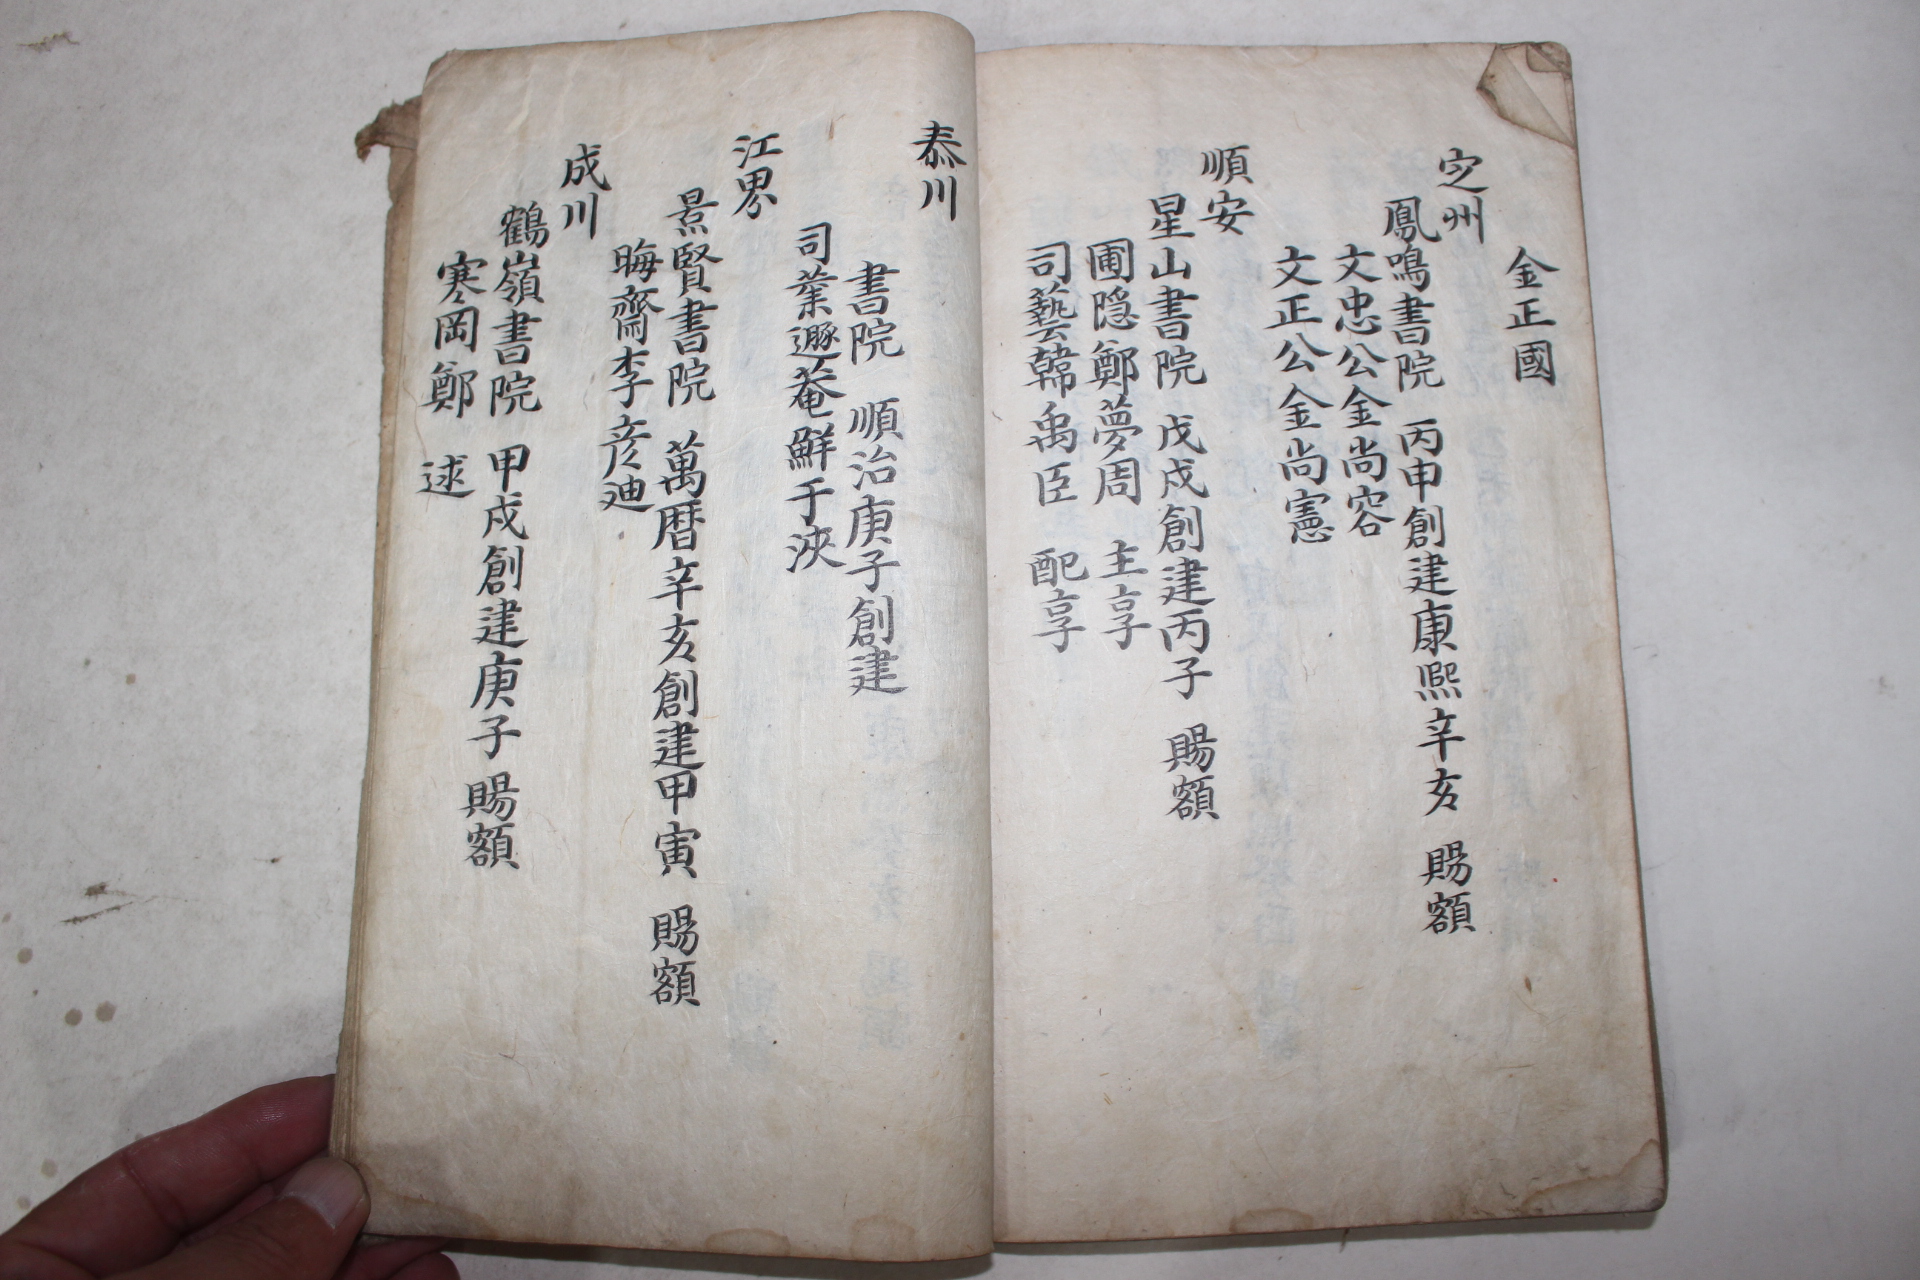 金正國
定州
鳳鳴書院 丙申創建康熙辛亥 賜額
文忠公金尚容
文正公金尚憲
順安
星山書院 戊戌創建丙子 賜額
圃隠鄭夢周 主享
司藝韓禹臣 配享
泰川
書院 順治庚子創建
司業遯菴鮮于浹
江界
景賢書院 萬曆辛亥創建甲寅 賜額
晦齋李彦迪
成川
鶴嶺書院 甲戌創建庚子 賜額
寒岡鄭 逑